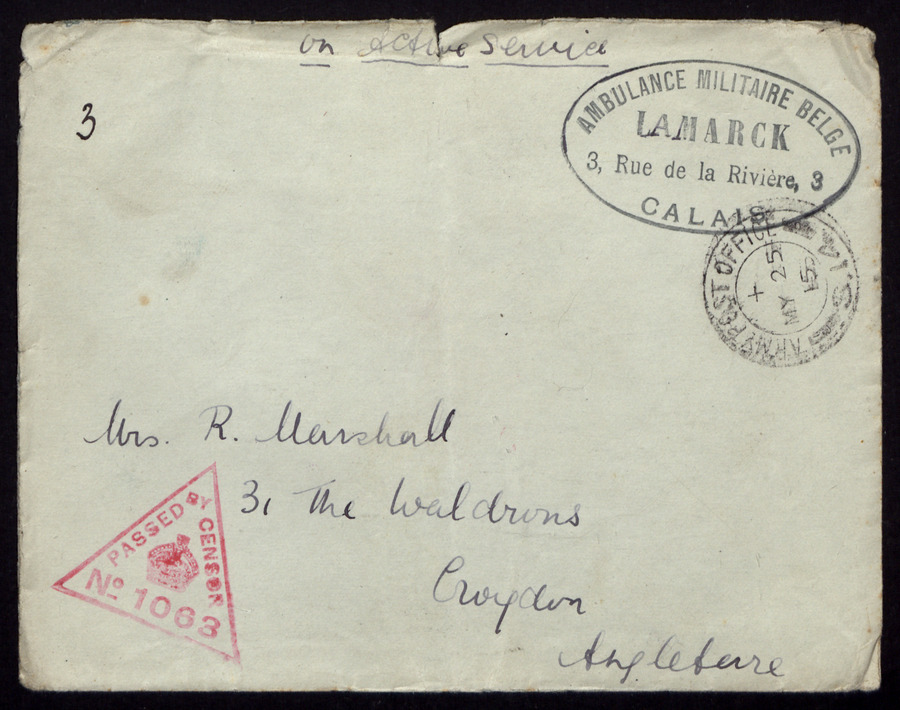 on Active Service
3
AMBULANCE MILITAIRE BELGE
LAMARCK
3, Rue de la Rivière, 3
CALAIS
ARMY POST OFFICE
S.14
+
MY 25
15
Mrs. R. Marshall
3, The Waldrons
Croydon
Angleterre
PASSED BY CENSOR
No. 1063